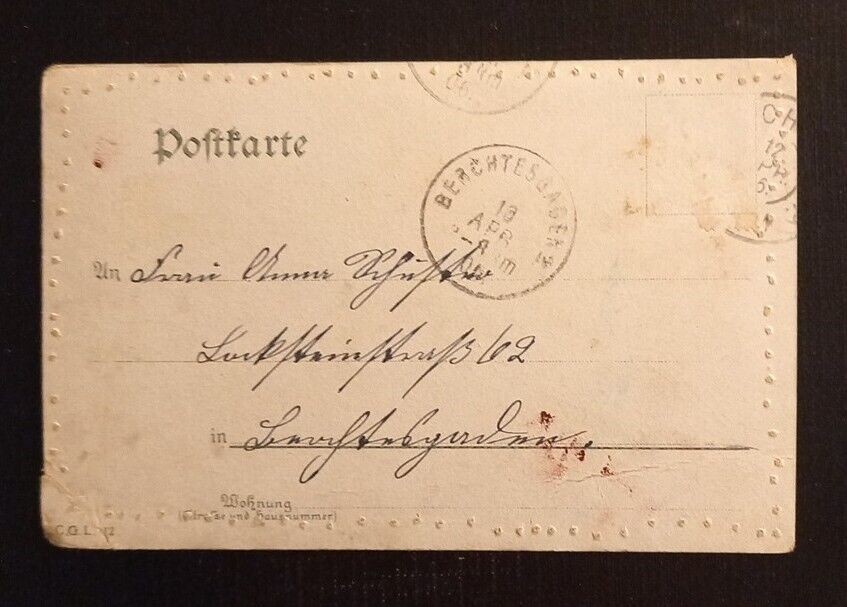 Postkarte
BERCHTESGADEN
APR
An Frau Anna Schuster
Locksteinstraß 62
in Berchtesgaden.
Wohnung
(Straße und Hausnummer)
C.G.L.